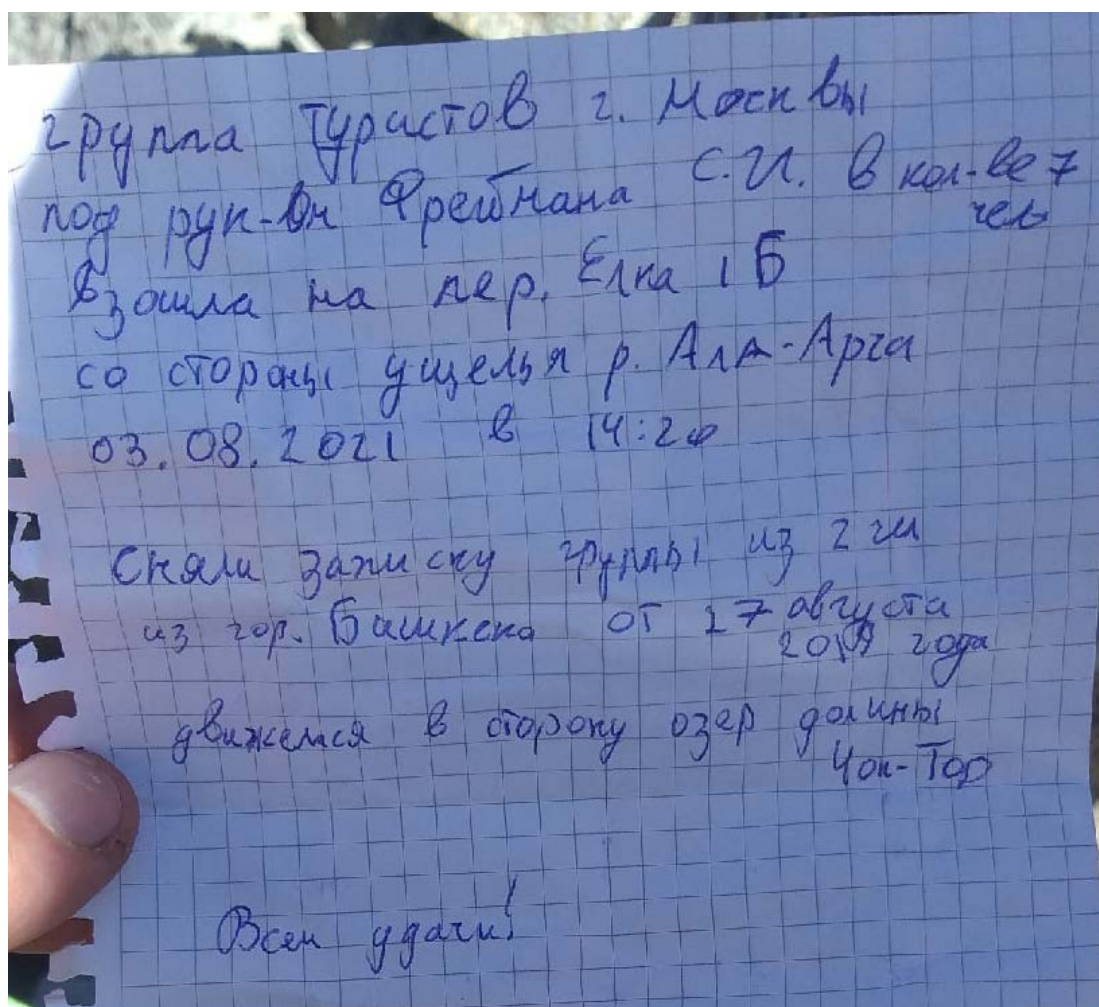 группа туристов г. Москвы
под рук-вм Фрейнмана С.И. в кол-ве 7
чел
Взошла на пер. Елка 1Б
со стороны ущелья р. Ала-Арча
03.08.2021 в 14:20
Сняли записку группы из 2 чел
из гор. Бишкека от 17 августа
2019 года
движемся в сторону озер долины
Чон-Тор
Всем удачи!